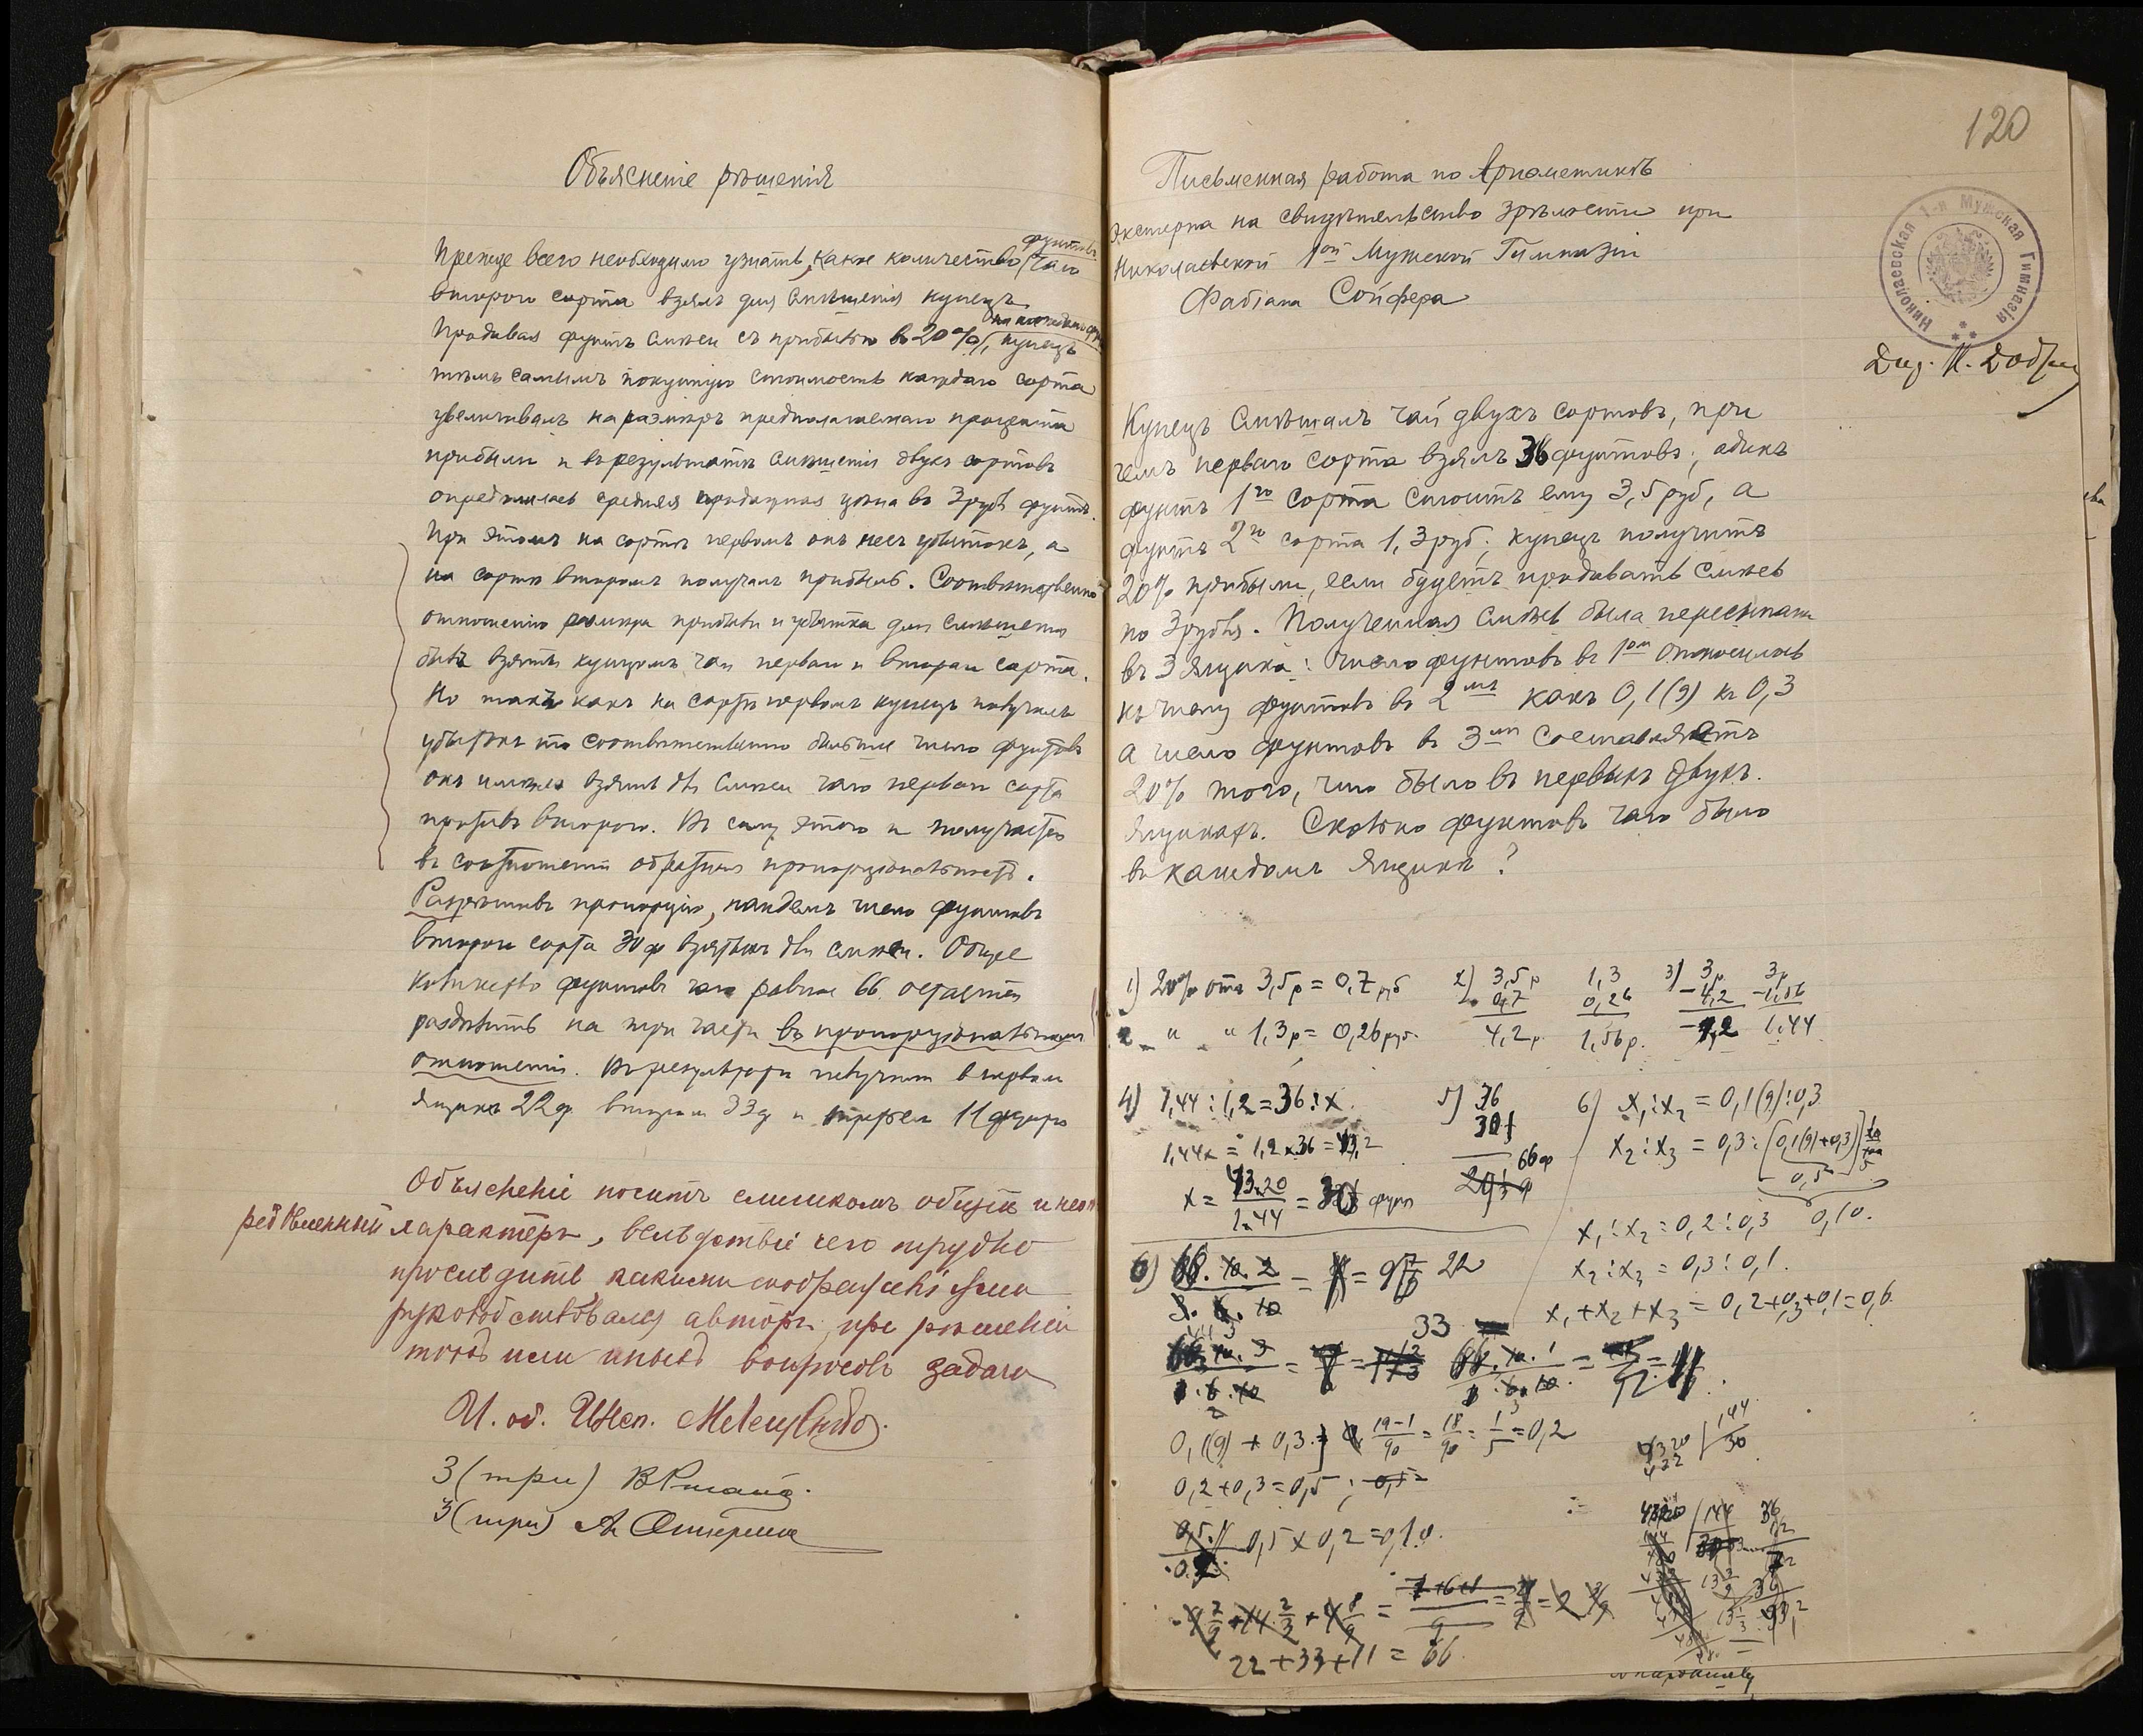 Объясненіе рѣшенія
фунтовъ
Прежде всего необходимо узнать, какое количество чаю
второго сорта взялъ для смѣшенія купецъ
на каждомъ
Продавая фунтъ смѣси съ прибылью въ 20%, купецъ
тѣмъ самымъ покупную стоимость каждаго сорта
увеличивалъ на размѣръ предполагаемаго процента
прибыли и въ результатѣ смѣшенія двухъ сортовъ
опредѣлилась средняя продажная цѣна въ 3 руб фунтъ.
При этомъ на сортѣ первомъ онъ несъ убытокъ, а
на сортѣ второмъ получалъ прибыль. Соотвѣтственно
отношенію размѣра прибыли и убытка для смѣшенія
былъ взятъ купцомъ чай перваго и второго сорта.
Но такъ какъ на сортѣ первомъ купецъ получалъ
убытокъ то соотвѣтственно большее число фунтовъ
онъ взять для смѣси чаю перваго сорта
противъ второго. Въ силу этого и получается
въ соотношеніи обратная пропорціональность.
Разрѣшивъ пропорцію, найдемъ число фунтовъ
второго сорта 30 ф взятыхъ для смѣси. Общее
количество фунтовъ чаю равное 66 остается
раздѣлить на три части въ пропорціональномъ
отношеніи. Въ результатѣ получимъ въ первомъ
ящикѣ 22 ф. второмъ 33 ф и третьемъ 11 фунтовъ
Объясненіе носитъ слишкомъ общій и неоп
редѣленный характеръ, вслѣдствіе чего трудно
прослѣдить какими соображеніями
руководствовался авторъ при рѣшеніи
тѣхъ или иныхъ вопросовъ задачи
И. об. Инсп.
3 (три)
3 (три)
120
Письменная работа по Ариѳметикѣ
экстерна на свидѣтельство зрѣлости при
Николаевской 1ой Мужской Гимназіи
Фабіана Сойфера
Николаевская 1-я Мужская Гимназія
Дир. Н.
Купецъ смѣшалъ чай двухъ сортовъ, при
чемъ перваго сорта взялъ 36 фунтовъ; одинъ
фунтъ 1го сорта стоитъ ему 3,5 руб, а
фунтъ 2го сорта 1,3 руб; купецъ получитъ
20% прибыли, если будетъ продавать смѣсь
по 3 рубля. Полученная смѣсь была пересыпана
въ 3 ящика: число фунтовъ въ 1ом относилось
къ числу фунтовъ въ 2мъ какъ 0,1(9) къ 0,3
а число фунтовъ въ 3мъ составляетъ
20% того, что было въ первыхъ двухъ
ящикахъ. Сколько фунтовъ чаю было
въ каждомъ ящикѣ?
1) 20% отъ 3,5 р = 0,7 руб 2) 3,5 р 1,3 3) 3 р 3 р
0,7 0,26 -4,2 -1,56
" " 1,3 р = 0,26 руб. 4,2 р. 1,56 р. -1,2 1,44
4) 1,44 : 1,2 = 36 : x. 5) 36 6) x₁:x₂ = 0,1(9):0,3
30
1,44x = 1,2 x 36 = 43,2 66 ф x₂:x₃ = 0,3:(0,1(9)+0,3)
0,5
x = 43.20/1.44 = 30 фунт
x₁:x₂ = 0,2:0,3 0,10.
6) 66.10.2 = 22 x₂:x₃ = 0,3:0,1.
x₁+x₂+x₃ = 0,2+0,3+0,1=0,6.
33
66.10.1 = 11
0,1(9) + 0,3 19-1/90 = 18/90 = 1/5 = 0,2
0,2+0,3=0,5
4320 | 144
432 30
0,5 x 0,2 = 0,10.
22 + 33 + 11 = 66